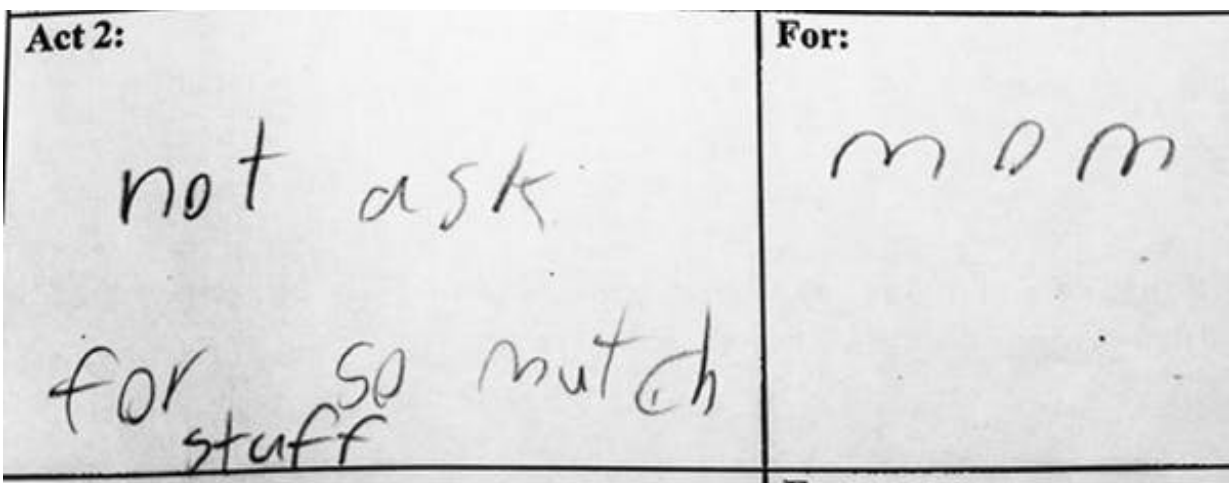 Act 2:
not ask
for so mutch
stuff
For:
mom